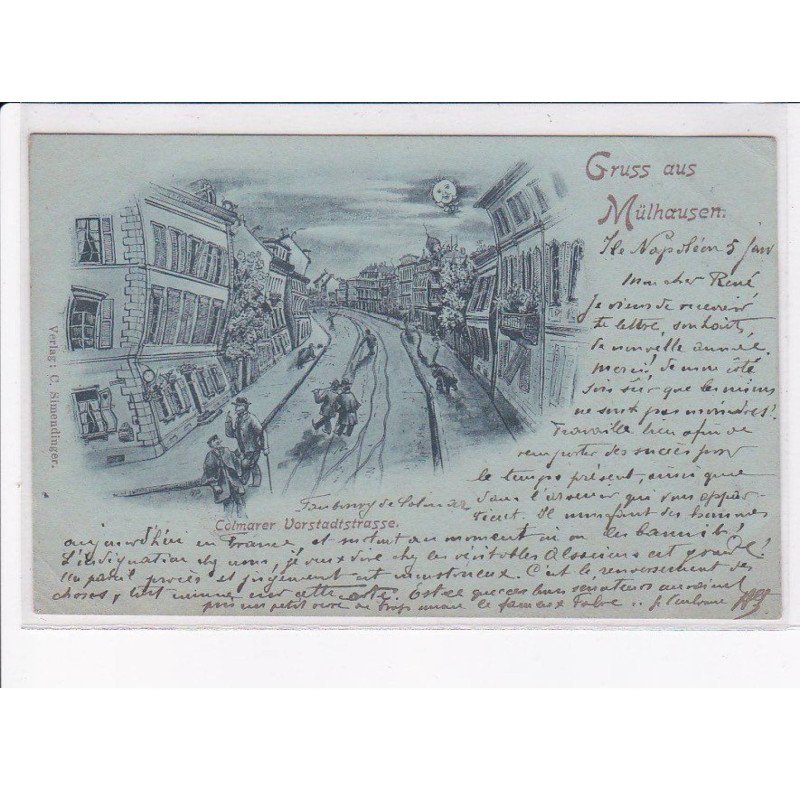 Gruss aus
Mülhausen.
Ile Napoléon 5 Janv
Mon cher René
Je viens de recevoir
ta lettre, souhait,
la nouvelle année.
Merci, de mon côté
sois sûr que les miens
ne sont pas moindres!
Travaille bien afin de
remporter des succès pour
le temps présent, ainsi que
dans l'avenir qui vous appar-
tient. Il manquent des hommes
Verlag: C. Simendinger.
Faubourg de Colmar
Colmarer Vorstadtstrasse.
aujourd'hui en France, et surtout au moment où on les bannit!
L'indignation chez nous, je veux dire chez les véritables Alsaciens est grande!
Un pareil procès et jugement est monstrueux. C'est le renversement des
choses, tout comme cette côté. Est-ce que ces bons sénateurs auraient
pris un petit verre de trop le fameux